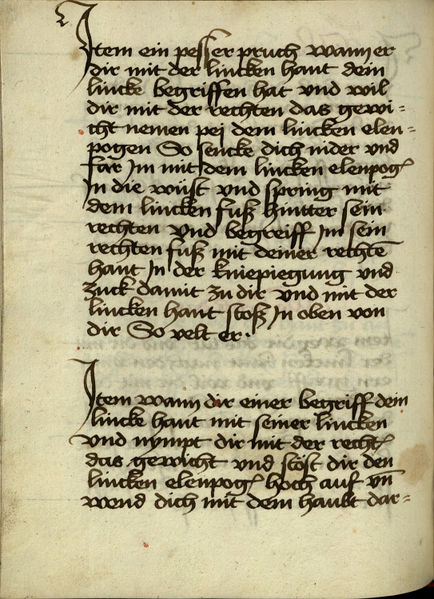 Item ein pesser pruch wann er
dir mit der lincken hant dein
lincke begriffen hat vnd wil
dir mit der rechten das gewi=
cht nemen pei dem lincken elen=
pogen So sencke dich nider vnd
far Im mit dem lincken elenpog
In die wüst vnd spring mit
dem lincken fuß hintter sein
rechten vnd begreiff Im sein
rechten fuß mit deiner rechtē
hant In der kniepiegung vnd
zuck damit zu dir vnd mit der
lincken hant stoß In oben von
dir So velt er.
Item wann dir einer begriff dein
lincke hant mit seiner lincken
vnd nympt dir mit der recht
das gewicht vnd stöst dir den
lincken elenpog hoch auf vn̄
wend dich mit dem haubt dar=